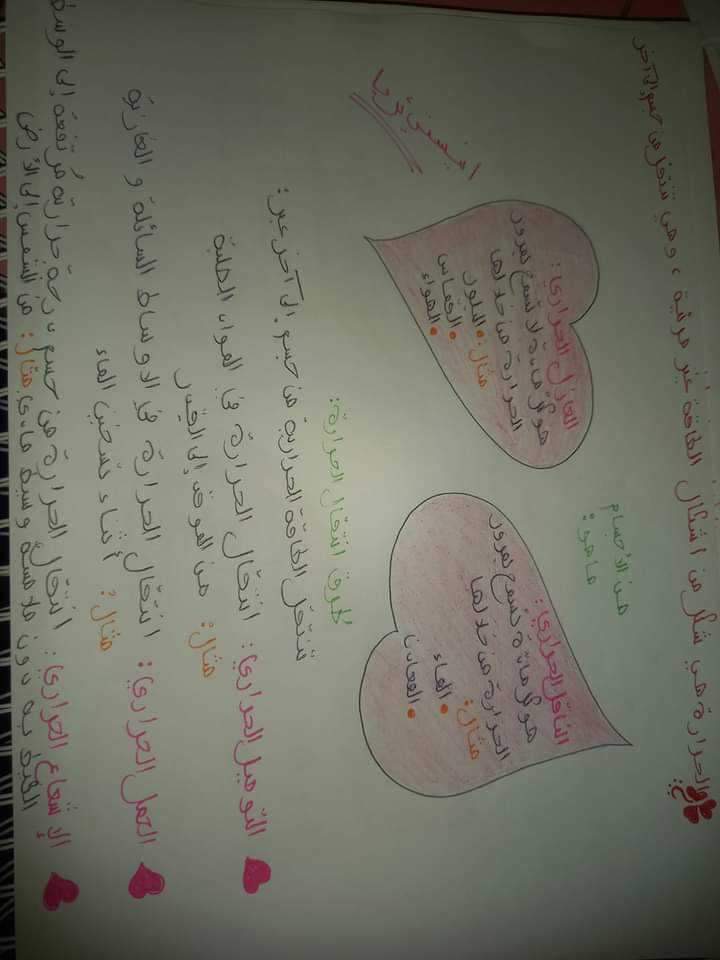 الحرارة هي شكل من أشكال الطاقة غير مرئية، وهي تنتقل من جسم إلى آخر
من الأجسام
ما هو:
الناقل الحراري:
هو كل مادة تسمح بمرور
الحرارة من خلالها
مثال:
• الماء
• المعادن
العازل الحراري:
هو كل مادة لا تسمح بمرور
الحرارة من خلالها
مثال: •
•
• الهواء
طرق انتقال الحرارة:
تنتقل الطاقة الحرارية من جسم إلى آخر عبر:
التوصيل الحراري: انتقال الحرارة في المواد الصلبة
مثال: من الموقد إلى القدر
الحمل الحراري: انتقال الحرارة في الاوساط السائلة و الغازية
مثال: أثناء تسخين الماء
الإشعاع الحراري: انتقال الحرارة من جسم درجة حرارته مرتفعة إلى الوسط
المحيط به دون ملامسة وسيط مادي مثال: من الشمس إلى الأرض